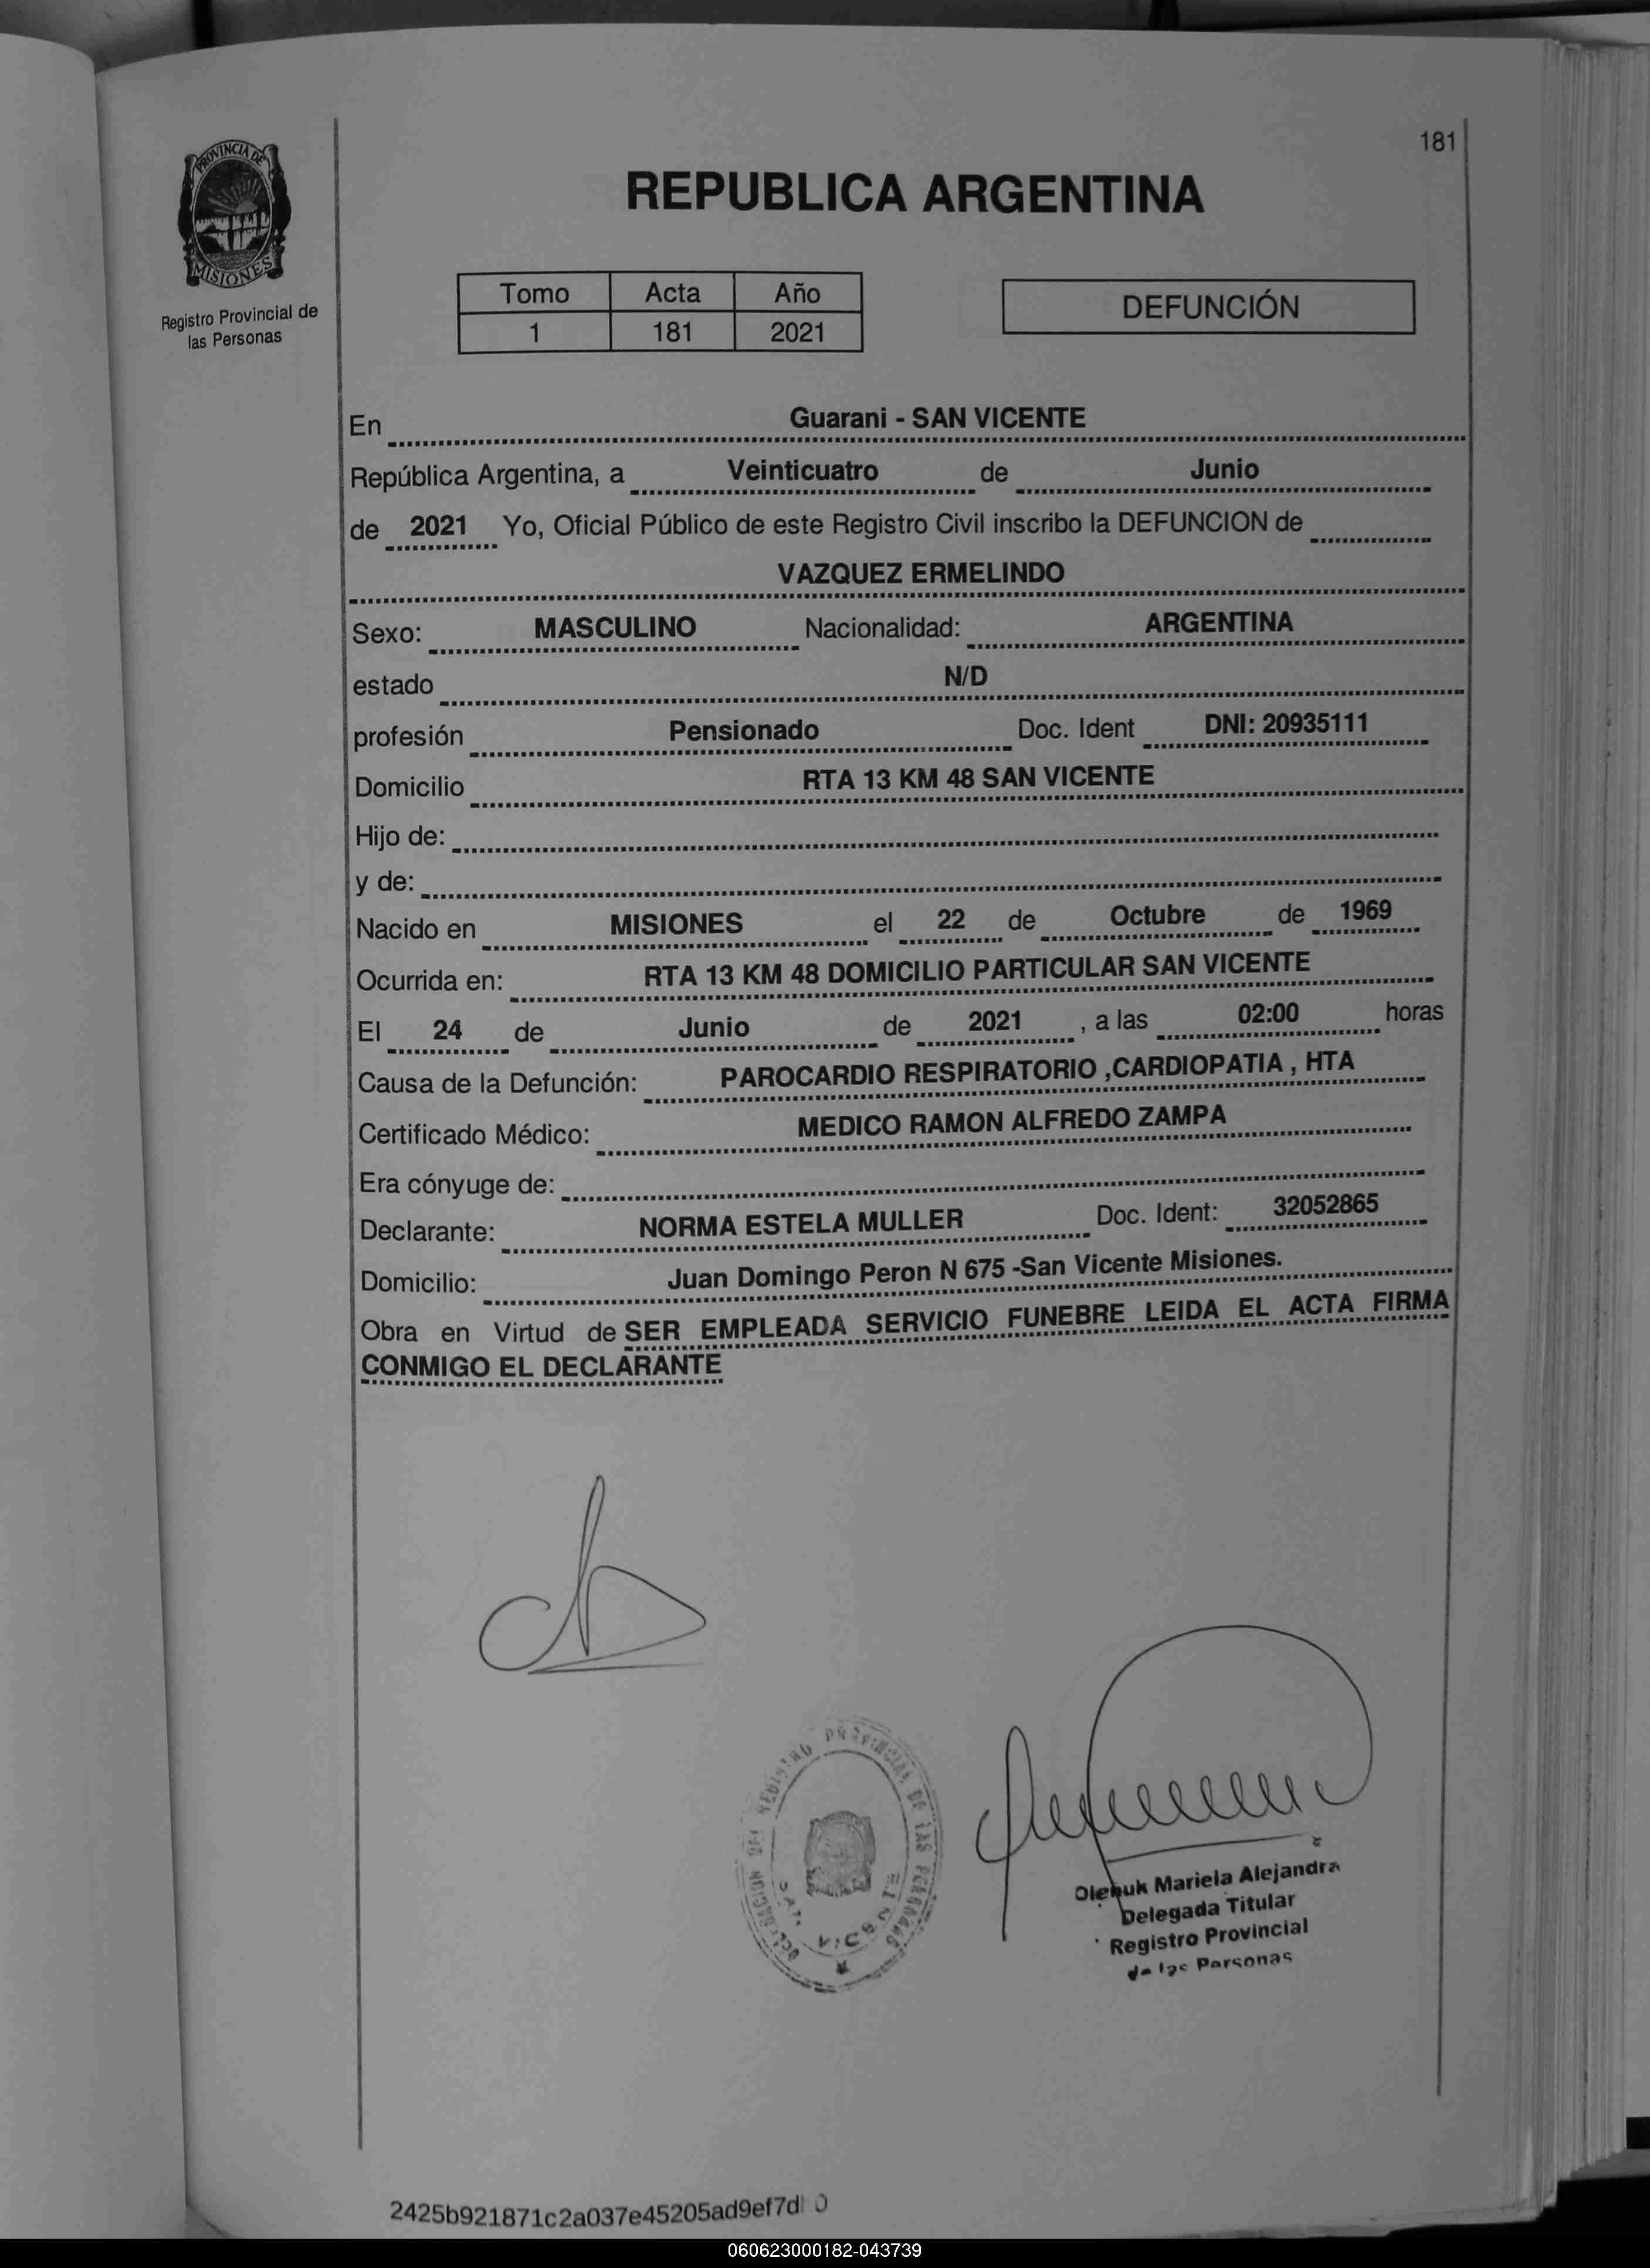 181
PROVINCIA DE
MISIONES
Registro Provincial de
las Personas
REPUBLICA ARGENTINA
Tomo Acta Año
1 181 2021
DEFUNCIÓN
En Guarani - SAN VICENTE
República Argentina, a Veinticuatro de Junio
de 2021 Yo, Oficial Público de este Registro Civil inscribo la DEFUNCION de
VAZQUEZ ERMELINDO
Sexo: MASCULINO Nacionalidad: ARGENTINA
estado N/D
profesión Pensionado Doc. Ident DNI: 20935111
Domicilio RTA 13 KM 48 SAN VICENTE
Hijo de:
y de:
Nacido en MISIONES el 22 de Octubre de 1969
Ocurrida en: RTA 13 KM 48 DOMICILIO PARTICULAR SAN VICENTE
El 24 de Junio de 2021 , a las 02:00 horas
Causa de la Defunción: PAROCARDIO RESPIRATORIO ,CARDIOPATIA , HTA
Certificado Médico: MEDICO RAMON ALFREDO ZAMPA
Era cónyuge de:
Declarante: NORMA ESTELA MULLER Doc. Ident: 32052865
Domicilio: Juan Domingo Peron N 675 -San Vicente Misiones.
Obra en Virtud de SER EMPLEADA SERVICIO FUNEBRE LEIDA EL ACTA FIRMA
CONMIGO EL DECLARANTE
REGISTRO PROVINCIAL DE LAS PERSONAS
Mariela Alejandra
Delegada Titular
Registro Provincial
de las Personas
2425b921871c2a037e45205ad9ef7d
060623000182-043739